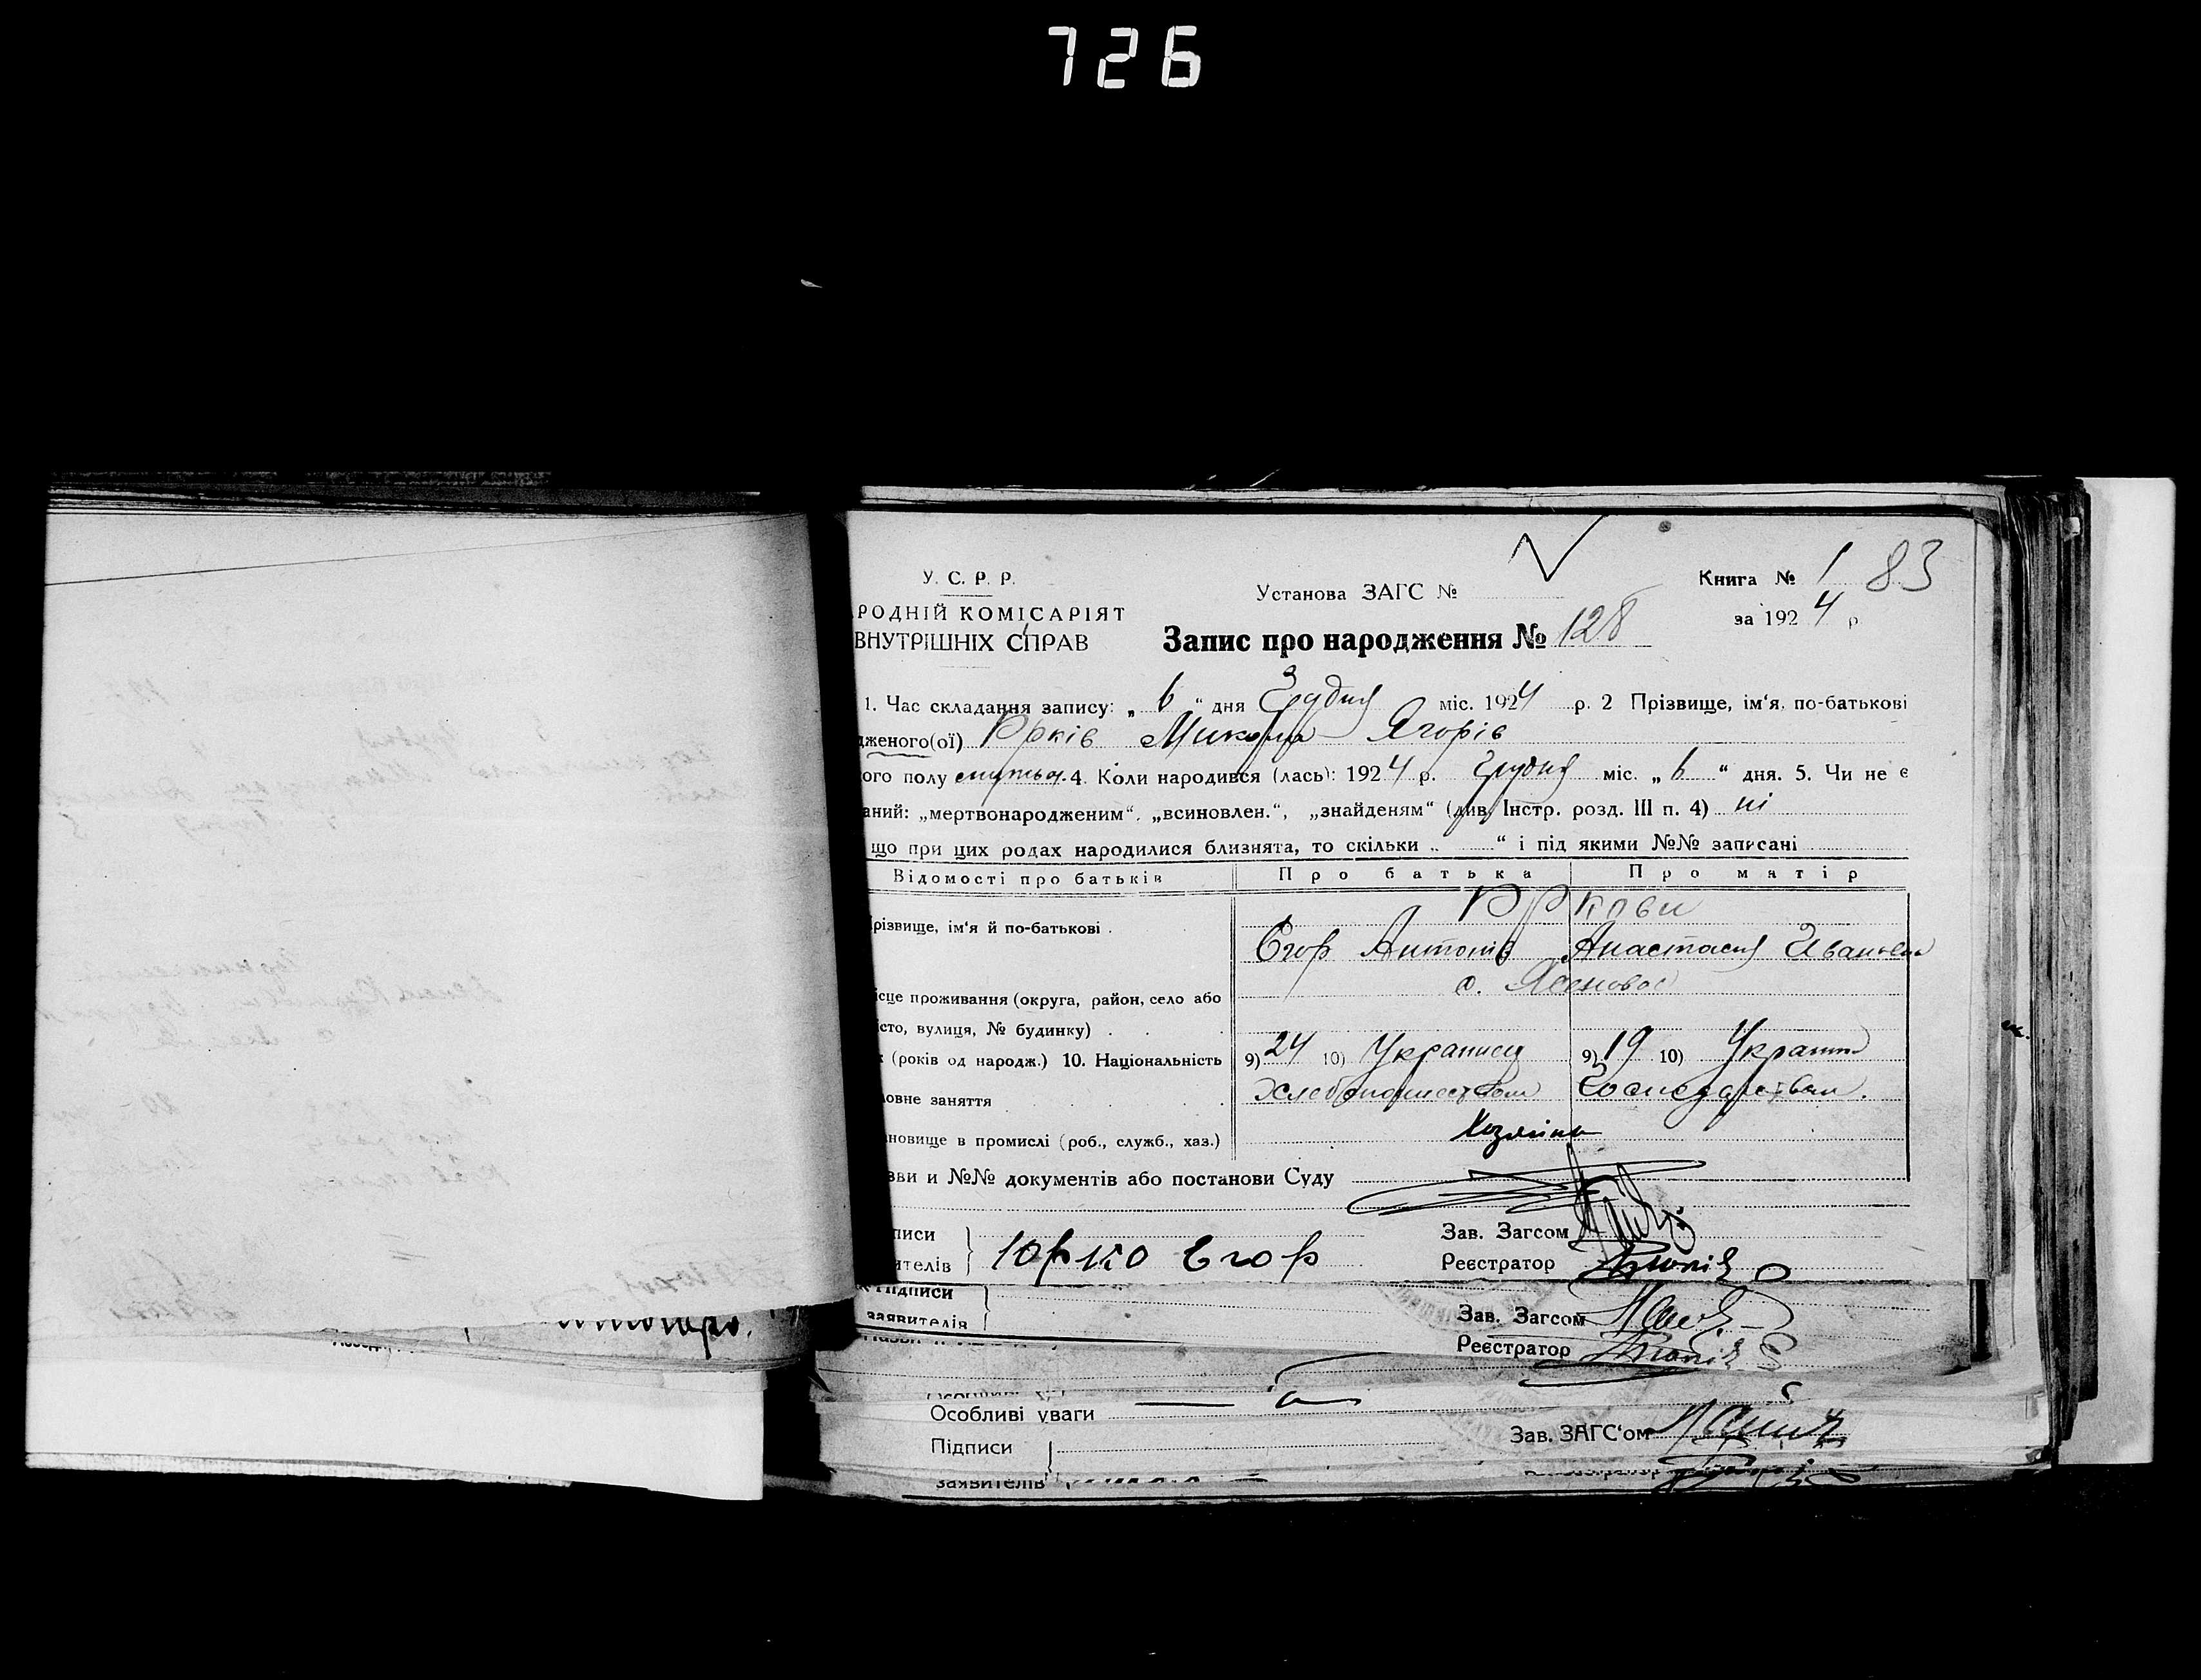 726
У. С. Р. Р.
РОДНІЙ КОМІСАРІЯТ
ВНУТРІШНІХ СПРАВ
Установа ЗАГС №
Книга № 1 83
за 1924 р
Запис про народження № 128
1. Час складання запису: „ 6 “ дня Грудня міс. 1924 р. 2 Прізвище, ім‘я, по-батькові
дженого(ої) Юрків Микола Ягорів
ого полу 4. Коли народився (лась): 1924 р. Грудня міс. „ 6 “ дня. 5. Чи не є
аний: „мертвонародженим“, „всиновлен.“, „знайденям“ (див. Інстр. розд. III п. 4) ні
що при цих родах народилися близнята, то скільки „ “ і під якими №№ записані
Відомості про батьків Про батька Про матір
Юркови
різвище, ім‘я й по-батькові .
Єгор Антонів Анастасия Іванівна
с. Ясеновос
ісце проживання (округа, район, село або
істо, вулиця, № будинку) . .
(років од народж.) 10. Національність 9) 24 10) Украинец 9) 19 10)
овне заняття
ановище в промислі (роб., служб., хаз.) Хозяїна
зви и №№ документів або постанови Суду
писи
ителів } Юрко Егор
Зав. Загсом
Реєстратор
Підписи
заявителів
Зав. Загсом
Реєстратор
Особливі уваги
Підписи
заявителів
Зав. ЗАГС‘ом